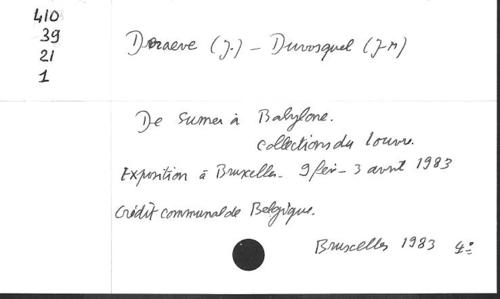 410
39
21
1
Draeve (J.) – Duvosquel (J-M)
De Sumer à Babylone.
Collections du Louvre.
Exposition à Bruxelles. 9 fév – 3 avril 1983
Crédit communal de Belgique.
Bruxelles 1983 4°